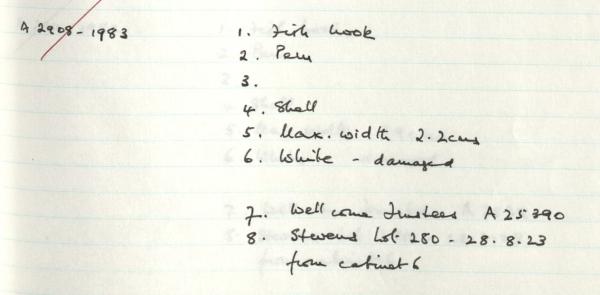 A 2908-1983
1. Fish hook
2. Peru
3.
4. Shell
5. Max. width 2.2cms
6. White - damaged
7. Wellcome Trustees A 25390
8. Stevens Lot 280 - 28.8.23
from cabinet 6